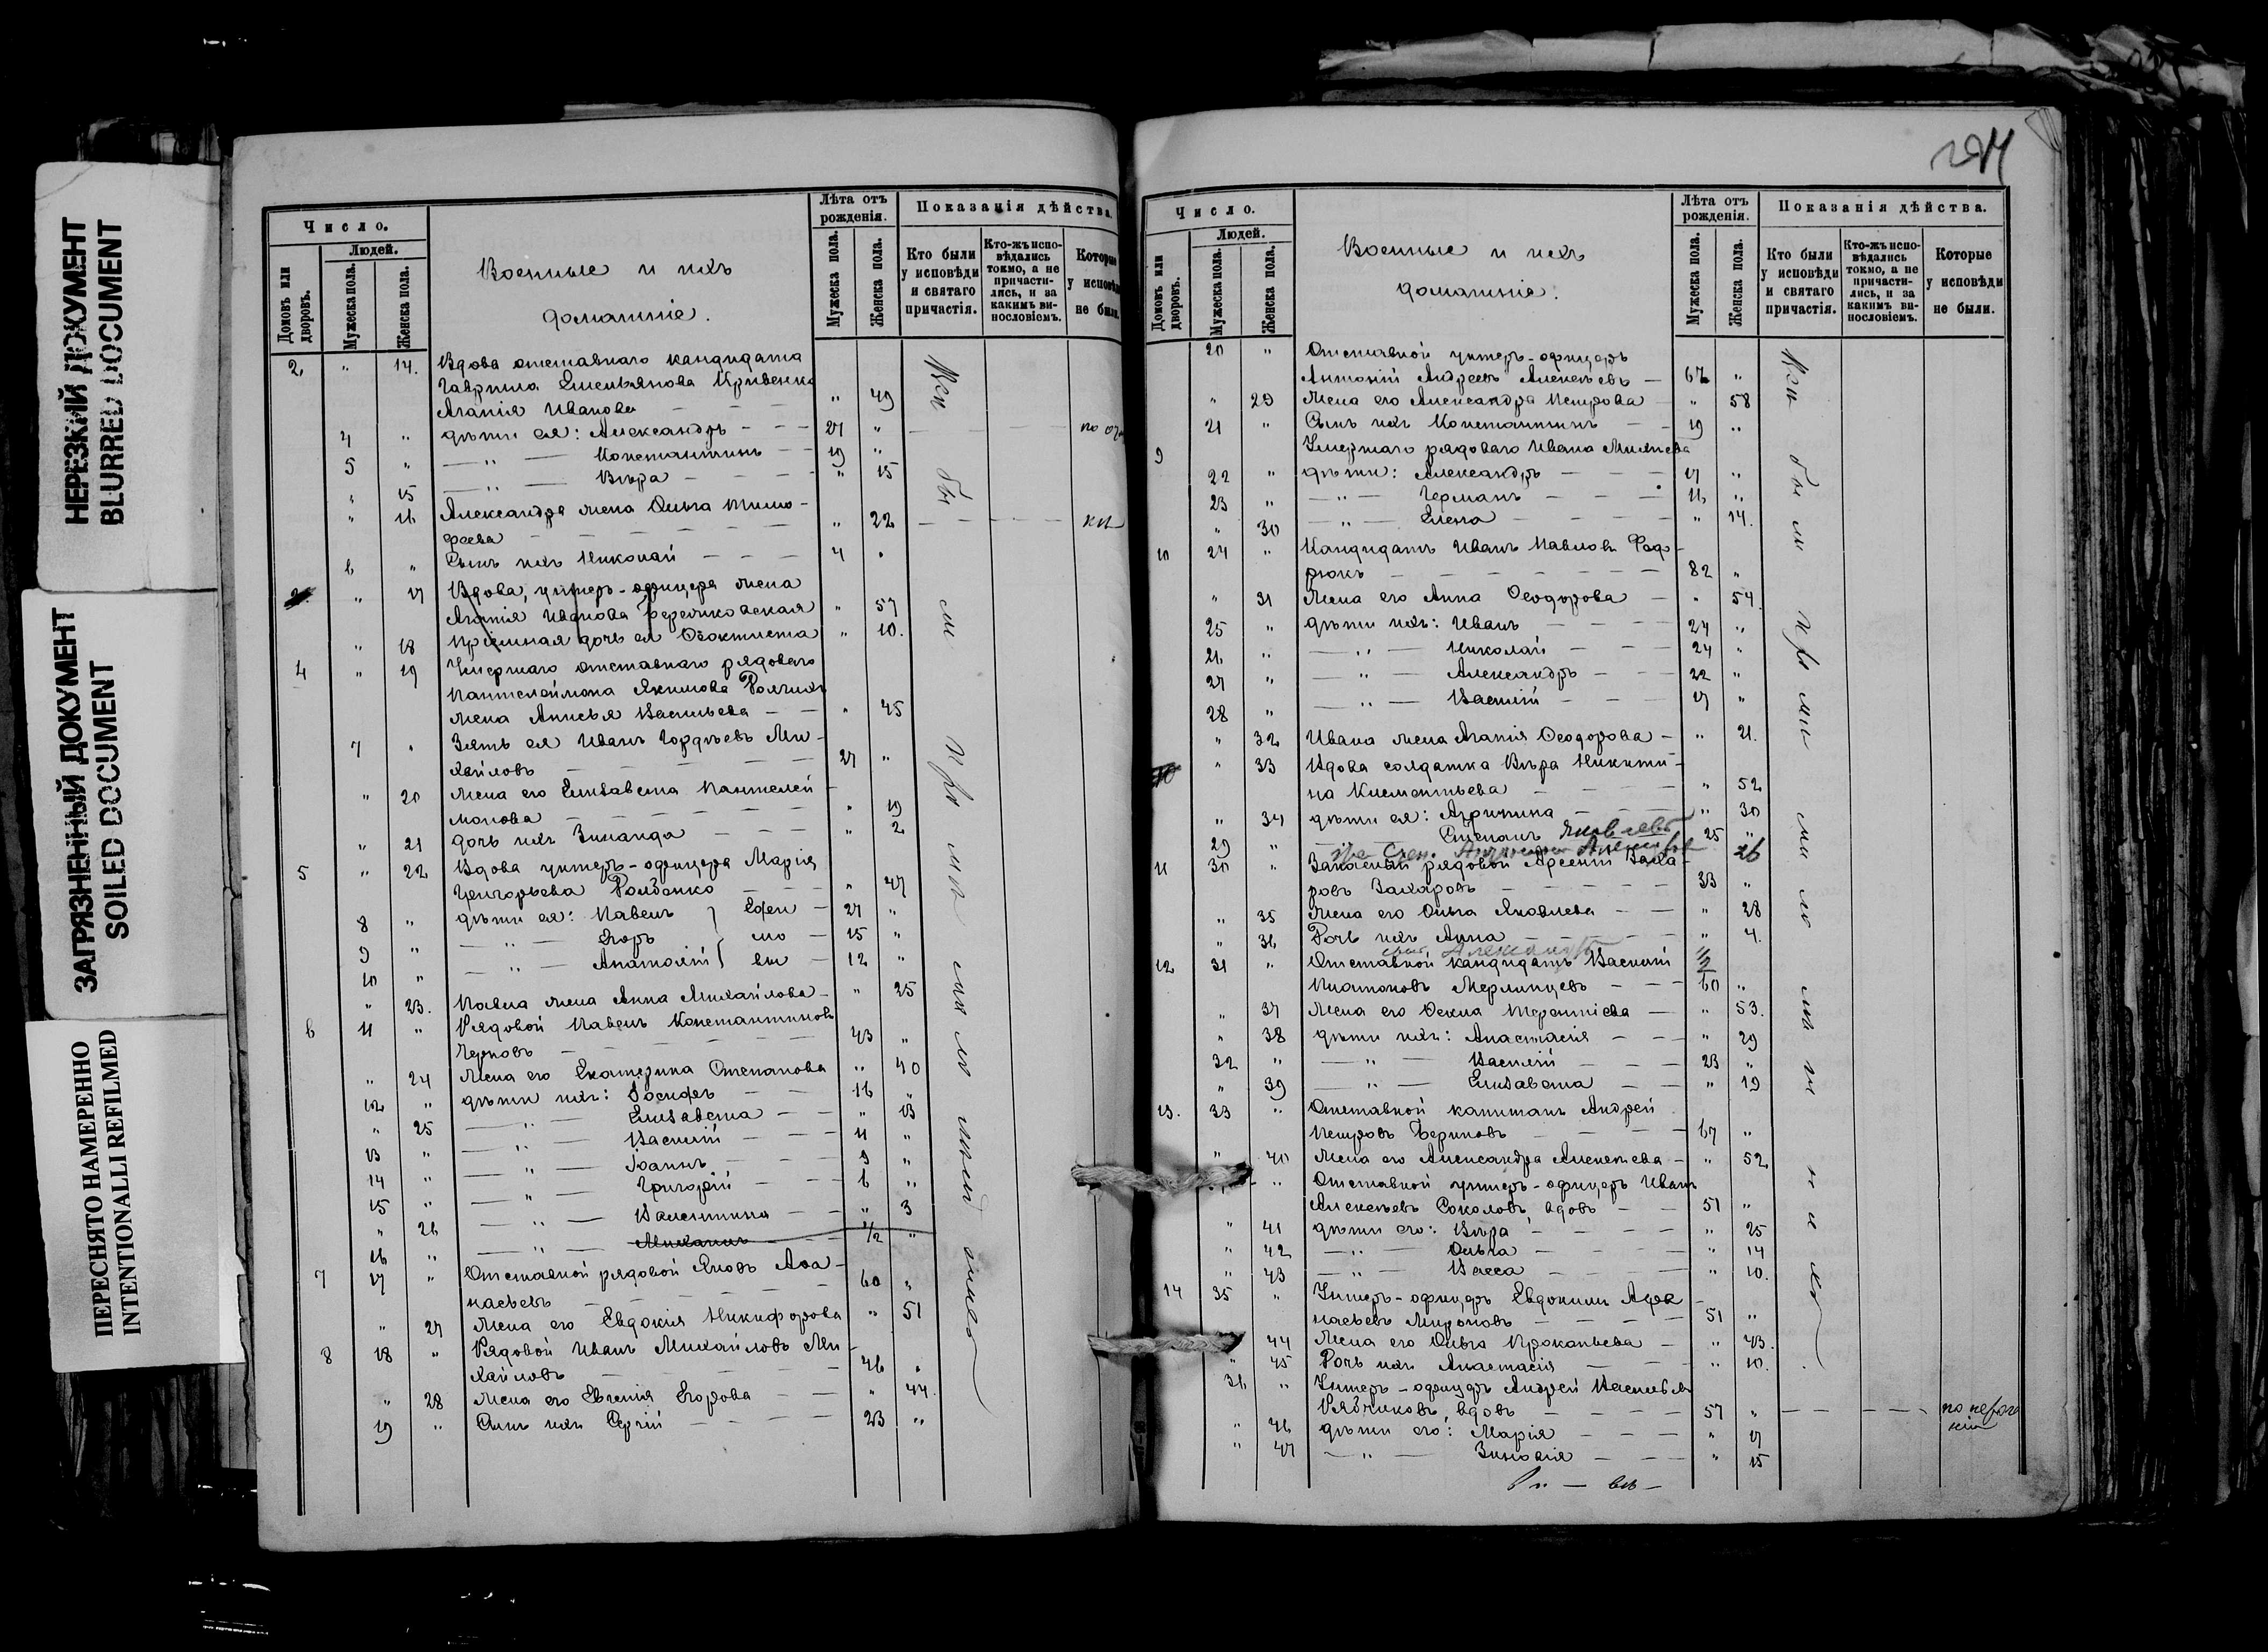 НЕРЕЗКИЙ ДОКУМЕНТ
BLURRED DOCUMENT
ЗАГРЯЗНЕННЫЙ ДОКУМЕНТ
SOILED DOCUMENT
ПЕРЕСНЯТО НАМЕРЕННО
INTENTIONALLI REFILMED
Число.
Домовъ или дворовъ.
Людей.
Мужеска пола.
Женска пола.
Военные и ихъ
домашніе.
Лѣта отъ рожденія.
Мужеска пола.
Женска пола.
Показанія дѣйства.
Кто были у исповѣди и святаго причастія.
Кто-жъ исповѣдались токмо, а не причастились, и за какимъ винословіемъ.
Которые у исповѣди не были.
2 " 14. Вдова отставнаго кандидата
Гаврила Емельянова Кривенко
Агапія Иванова " 49
4 " дѣти ея: Александръ 27 "
5 " — " — Константинъ 19 "
" 15 — " — Вѣра " 15
" 16 Александра жена Ольга Тимо-
феева " 22
6 " Сынъ ихъ Николай 4 "
" 17 Вдова, унтеръ-офицера жена
Агапія Иванова " 57
" 18 Пріемная дочь ея Ѳеоктиста " 10.
4 " 19 Умершаго отставнаго рядоваго
Пантелеимона Якимова
жена Анисья Васильева " 45
7 " Зять ея Иванъ Гордѣевъ Ми-
хайловъ 27 "
" 20 Жена его Елисавета Пантелей-
монова " 19
" 21 дочь ихъ Зинаида " 2
5 " 22 Вдова унтеръ-офицера Марія
Григорьева " 47
8 " дѣти ея: Павелъ 27 "
9 " — " — Егоръ 15 "
10 " — " — Анатолій 12 "
" 23. Павла жена Анна Михайлова " 25
6 11 " Рядовой Павелъ Константиновъ
Черновъ 43 "
" 24 Жена его Екатерина Степанова " 40
12 " дѣти ихъ: Іосифъ 16 "
" 25 — " — Елисавета " 13
13 " — " — Василій 11 "
14 " — " — Іоаннъ 9 "
15 " — " — Григорій 6 "
" 26 — " — Валентина " 3
16 " — " — Михаилъ 1/2 "
7 17 " Отставной рядовой Яковъ Аѳа-
насьевъ 60 "
" 27 Жена его Евдокія Никифорова " 51
8 18 " Рядовой Иванъ Михайловъ Ми-
хайловъ 46 "
" 28 Жена его Евгенія Егорова " 44.
19 " Сынъ ихъ Сергій 23 "
Число.
Домовъ или дворовъ.
Людей.
Мужеска пола.
Женска пола.
Военные и ихъ
домашніе.
Лѣта отъ рожденія.
Мужеска пола.
Женска пола.
Показанія дѣйства.
Кто были у исповѣди и святаго причастія.
Кто-жъ исповѣдались токмо, а не причастились, и за какимъ винословіемъ.
Которые у исповѣди не были.
20 " Отставной унтеръ-офицеръ
Антоній Андреевъ Алексѣевъ 67 "
" 29 Жена его Александра Петрова " 58
21 " Сынъ ихъ Константинъ 19 "
9 Умершаго рядоваго Ивана
22 " дѣти: Александръ 17 "
23 " — " — Германъ 16 "
" 30 — " — Елена " 14.
10 24 " Кандидатъ Иванъ Павловъ
82 "
" 31 Жена его Анна Ѳеодорова " 54.
25 " дѣти ихъ: Иванъ 27 "
26 " — " — Николай 24 "
27 " — " — Александръ 22 "
28 " — " — Василій 17 "
" 32 Ивана жена Агапія Ѳеодорова " 21.
" 33 Вдова солдатка Вѣра Никити-
на Клементьева " 52
" 34 дѣти ея: Агрипина " 30
29 " Степанъ Яковлевъ 25 "
26
11 30 " Запасный рядовой Арсеній Заха-
ровъ Захаровъ 33 "
" 35 Жена его Ольга Яковлева " 28
" 36 Дочь ихъ Анна " 4.
12 31 " Отставной кандидатъ Василій
Платоновъ 60 "
" 37 Жена его Ѳекла Терентіева " 53.
" 38 дѣти ихъ: Анастасія " 29
32 " — " — Василій 23 "
" 39 — " — Елисавета " 19
13. 33 " Отставной капитанъ Андрей
Петровъ 67 "
" 40 Жена его Александра Алексѣева " 52
" Отставной унтеръ-офицеръ Иванъ
Алексѣевъ Соколовъ, вдовъ 51 "
" 41 дѣти его: Вѣра " 25
" 42 — " — Ольга " 14
" 43 — " — Васса " 10.
14 35 " Унтеръ-офицеръ Евдокимъ Аѳа-
насьевъ Мироновъ 51 "
44 Жена его Ольга Прокопьева " 43.
" 45 Дочь ихъ Анастасія " 10.
36 " Унтеръ-офицеръ Андрей Васильевъ
Рябчиковъ, вдовъ 57 "
" 46 дѣти его: Марія " 17
" 47 — " — Зиновія " 15